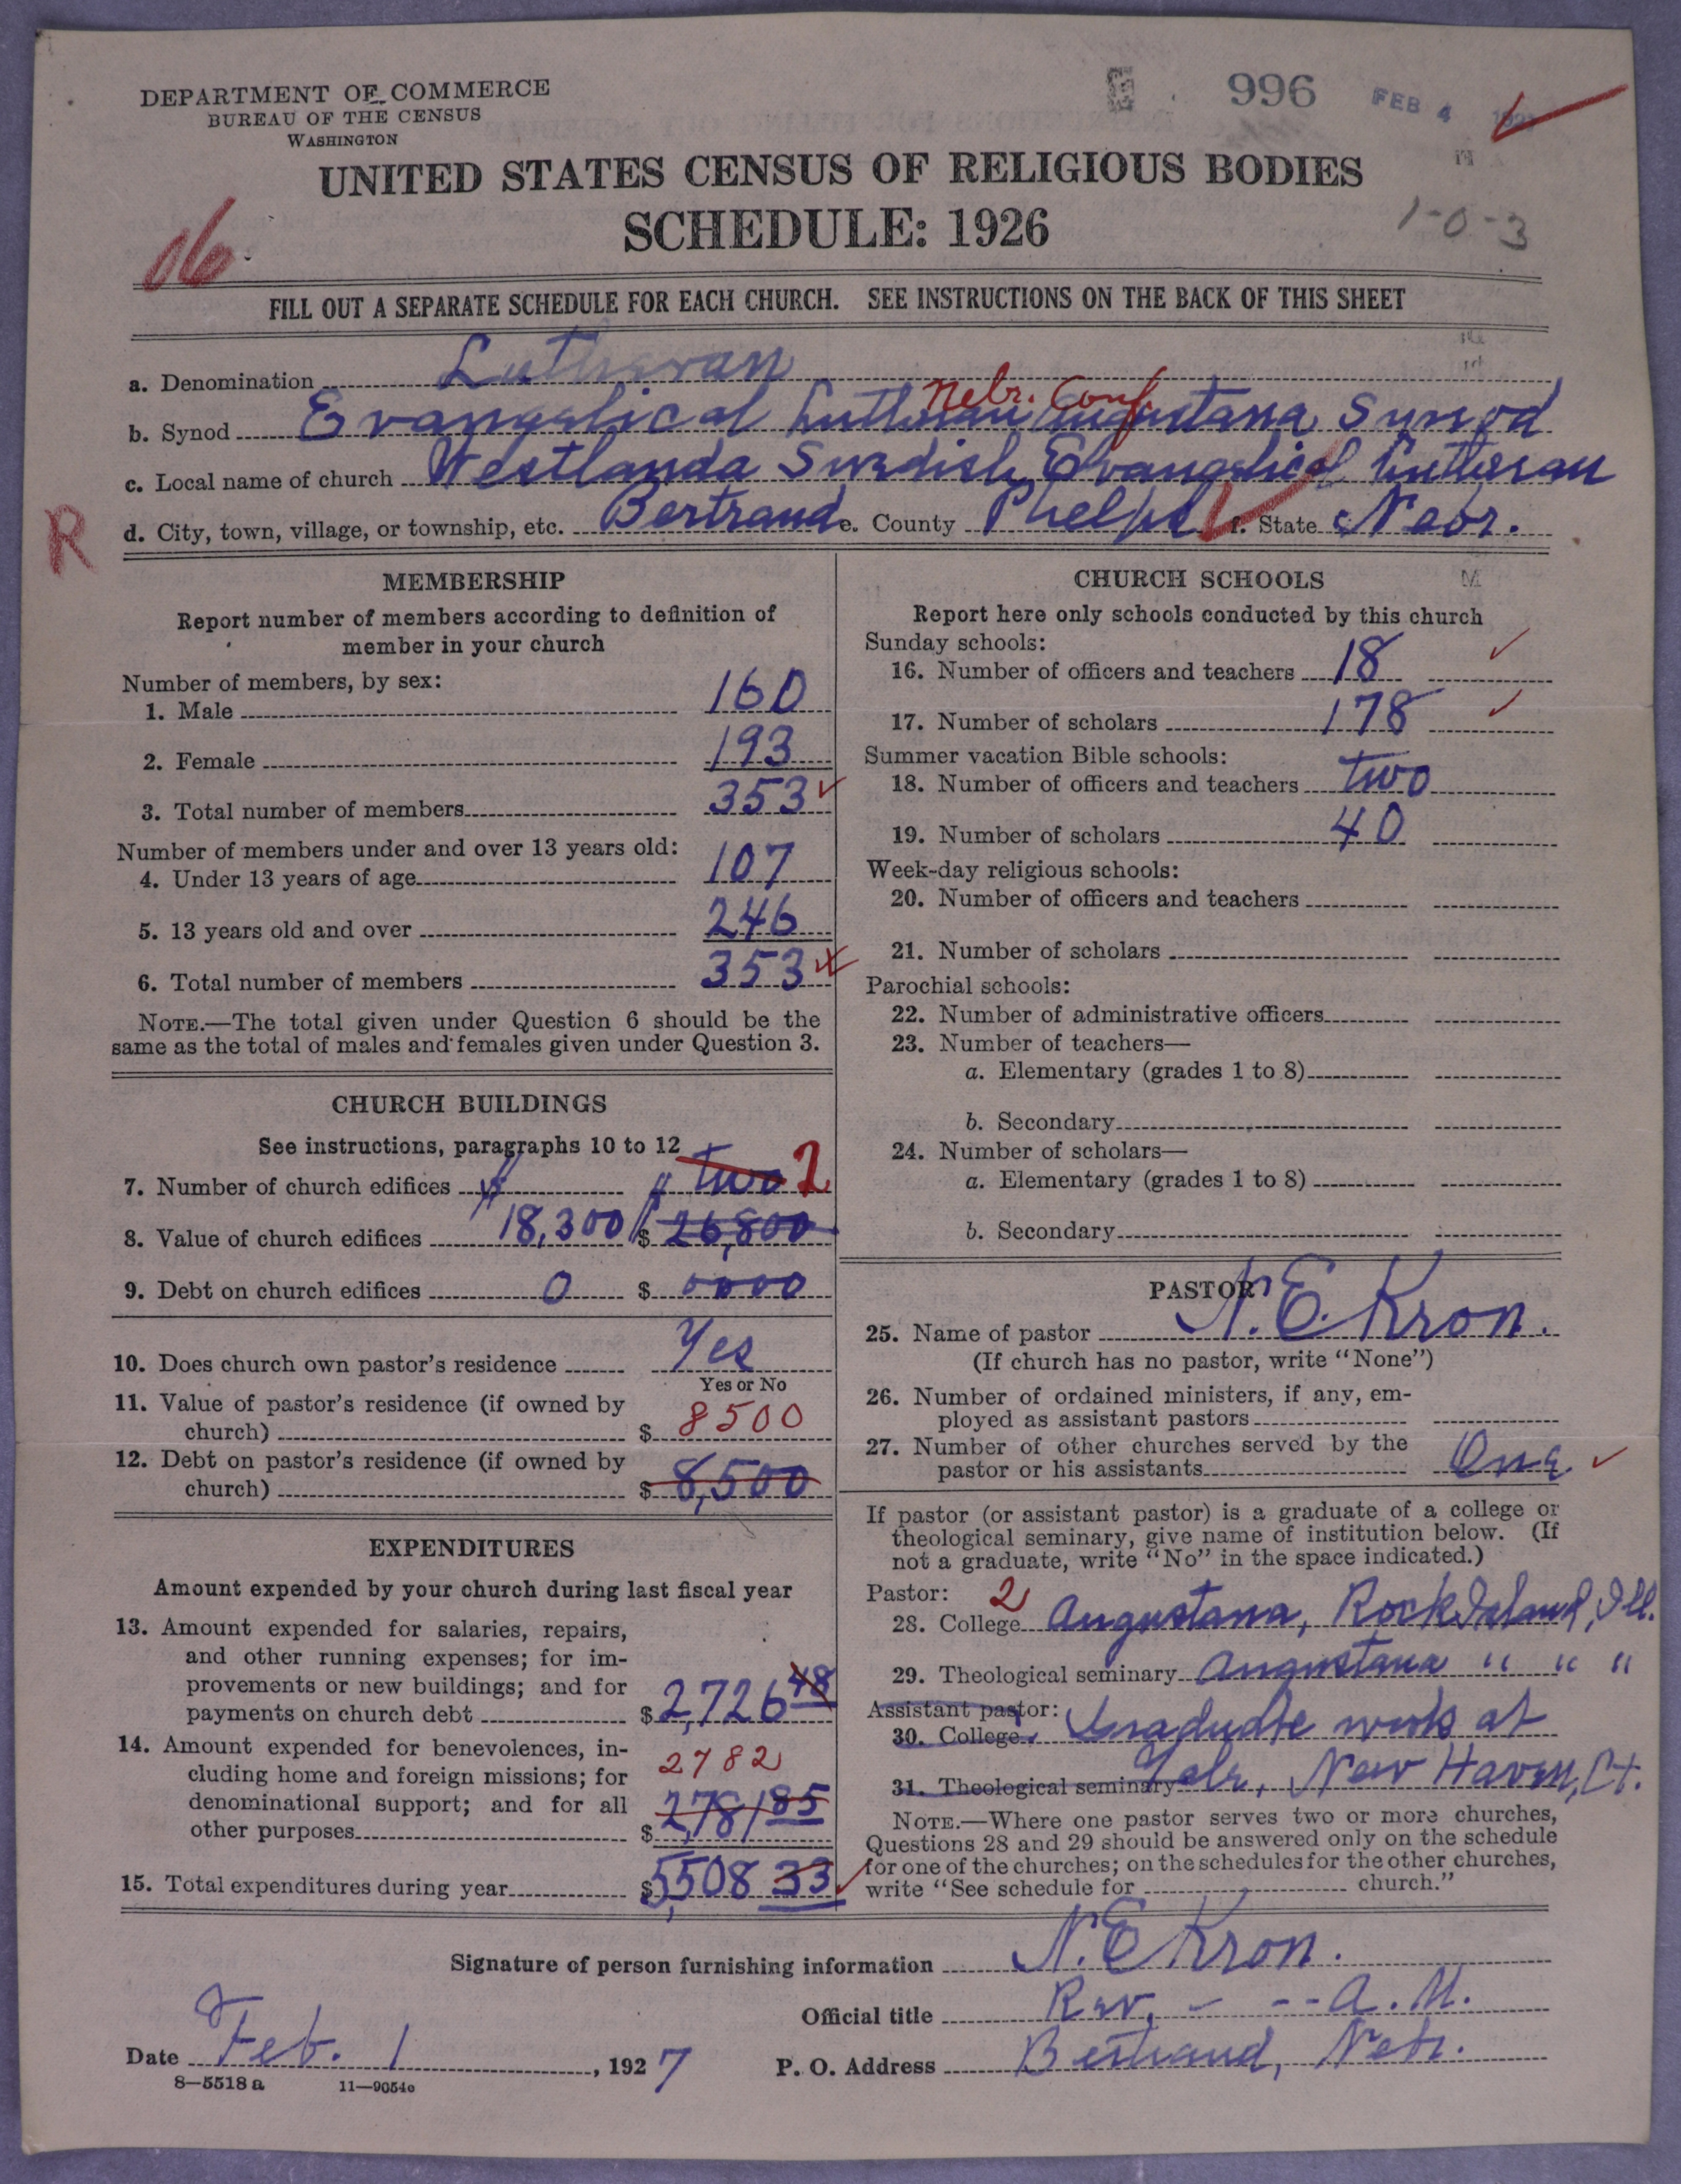 DEPARTMENT OF COMMERCE
BUREAU OF THE CENSUS
WASHINGTON
996
FEB 4 1927
UNITED STATES CENSUS OF RELIGIOUS BODIES
SCHEDULE: 1926
1-0-3
06
FILL OUT A SEPARATE SCHEDULE FOR EACH CHURCH. SEE INSTRUCTIONS ON THE BACK OF THIS SHEET
a. Denomination Lutheran
Nebr. Conf.
b. Synod Evangelical Lutheran Augustana Synod
c. Local name of church Westlanda Swedish Evangelical Lutheran
R
d. City, town, village, or township, etc. Bertrand e. County Phelps f. State Nebr.
MEMBERSHIP
Report number of members according to definition of
member in your church
Number of members, by sex:
1. Male 160
2. Female 193
3. Total number of members 353
Number of members under and over 13 years old:
4. Under 13 years of age 107
5. 13 years old and over 246
6. Total number of members 353
NOTE.—The total given under Question 6 should be the
same as the total of males and females given under Question 3.
CHURCH BUILDINGS
See instructions, paragraphs 10 to 12
7. Number of church edifices two 2
8. Value of church edifices 18,300 $ 26,800
9. Debt on church edifices 0 $ 0000
10. Does church own pastor's residence Yes
Yes or No
11. Value of pastor's residence (if owned by
church) $ 8500
12. Debt on pastor's residence (if owned by
church) $ 8,500
EXPENDITURES
Amount expended by your church during last fiscal year
13. Amount expended for salaries, repairs,
and other running expenses; for im-
provements or new buildings; and for
payments on church debt $ 2,726 48
14. Amount expended for benevolences, in-
cluding home and foreign missions; for
denominational support; and for all
other purposes $ 2782
2,781 85
15. Total expenditures during year $ 5,508 33
CHURCH SCHOOLS
M
Report here only schools conducted by this church
Sunday schools:
16. Number of officers and teachers 18
17. Number of scholars 178
Summer vacation Bible schools:
18. Number of officers and teachers two
19. Number of scholars 40
Week-day religious schools:
20. Number of officers and teachers
21. Number of scholars
Parochial schools:
22. Number of administrative officers
23. Number of teachers—
a. Elementary (grades 1 to 8)
b. Secondary
24. Number of scholars—
a. Elementary (grades 1 to 8)
b. Secondary
PASTOR
25. Name of pastor N. E. Kron.
(If church has no pastor, write "None")
26. Number of ordained ministers, if any, em-
ployed as assistant pastors
27. Number of other churches served by the
pastor or his assistants One
If pastor (or assistant pastor) is a graduate of a college or
theological seminary, give name of institution below. (If
not a graduate, write "No" in the space indicated.)
Pastor: 2
28. College Augustana, Rock Island, Ill.
29. Theological seminary Augustana " " "
Assistant pastor:
30. College Graduate work at
31. Theological seminary Yale, New Haven, Ct.
NOTE.—Where one pastor serves two or more churches,
Questions 28 and 29 should be answered only on the schedule
for one of the churches; on the schedules for the other churches,
write "See schedule for church."
Signature of person furnishing information N. E. Kron.
Official title Rev. - - - A. M.
Date Feb. 1, 1927
P. O. Address Bertrand, Nebr.
8—5518 a 11—9054c